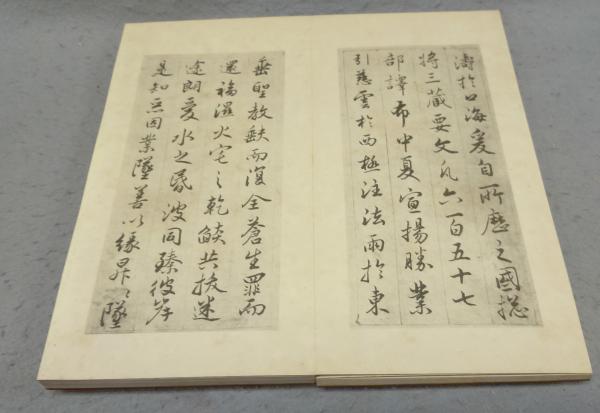 濤於口海爰自所歷之國揔
將三藏要文凡六百五十七
部譯布中夏宣揚勝業
引慈雲於西極注法雨於東
垂聖教缺而復全蒼生罪而
還福濕火宅之乾燄共拔迷
途朗愛水之昏波同臻彼岸
是知惡因業墜善以緣昇〻墜